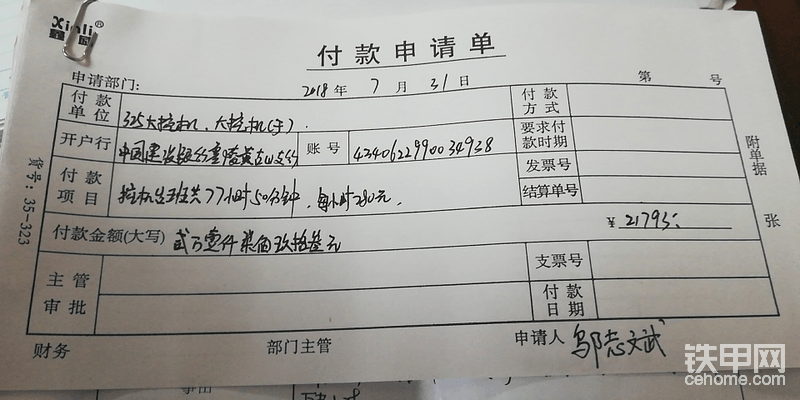 Xinli®
付款申请单
申请部门： 2018年 7月 31日 第 号
付款单位 325大挖机、大挖机(于). 付款方式
开户行 中国建设银行 账号 4340622990034938 要求付款时期
付款项目 挖机出班共77小时50分钟，每小时280元. 发票号
结算单号
付款金额(大写) 贰万壹仟柒佰玖拾叁元 ￥21793:
主管审批 支票号
付款日期
财务 部门主管 申请人 邬志文武
货号：35-323
附单据 张
铁甲网
cehome.com